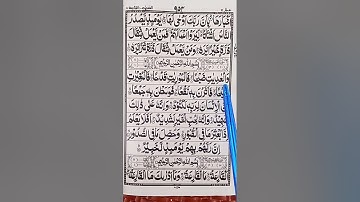 اَخْبَارَهَا بِاَنَّ رَبَّكَ اَوْحٰى لَهَا يَوْمَئِذٍ يَّصْدُرُ
النَّاسُ اَشْتَاتًا لِّيُرَوْا اَعْمَالَهُمْ فَمَنْ يَّعْمَلْ مِثْقَالَ
ذَرَّةٍ خَيْرًا يَّرَهٗ وَمَنْ يَّعْمَلْ مِثْقَالَ ذَرَّةٍ شَرًّا يَّرَهٗ
بِسْمِ اللّٰهِ الرَّحْمٰنِ الرَّحِيْمِ
وَالْعٰدِيٰتِ ضَبْحًا فَالْمُوْرِيٰتِ قَدْحًا فَالْمُغِيْرٰتِ
صُبْحًا فَاَثَرْنَ بِهٖ نَقْعًا فَوَسَطْنَ بِهٖ جَمْعًا
اِنَّ الْاِنْسَانَ لِرَبِّهٖ لَكَنُوْدٌ وَاِنَّهٗ عَلٰى ذٰلِكَ
لَشَهِيْدٌ وَاِنَّهٗ لِحُبِّ الْخَيْرِ لَشَدِيْدٌ اَفَلَا يَعْلَمُ
اِذَا بُعْثِرَ مَا فِي الْقُبُوْرِ وَحُصِّلَ مَا فِي الصُّدُوْرِ
اِنَّ رَبَّهُمْ بِهِمْ يَوْمَئِذٍ لَّخَبِيْرٌ
بِسْمِ اللّٰهِ الرَّحْمٰنِ الرَّحِيْمِ
اَلْقَارِعَةُ مَا الْقَارِعَةُ وَمَا اَدْرٰىكَ مَا الْقَارِعَةُ